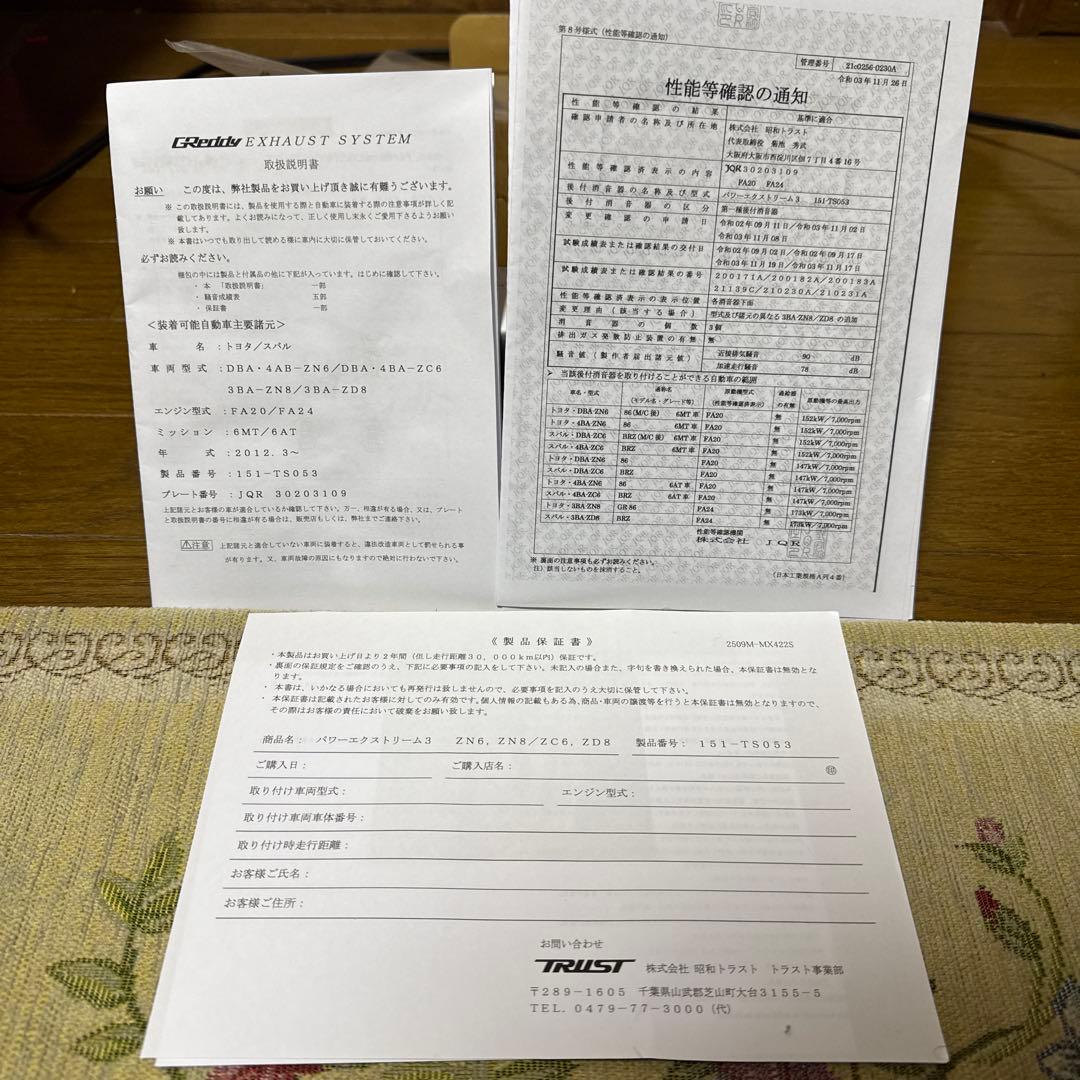 GReddy EXHAUST SYSTEM
取扱説明書
お願い この度は、弊社製品をお買い上げ頂き誠に有難うございます。
※ この取扱説明書には、製品を使用する際と自動車に装着する際の注意事項が詳しく記
載してあります。よくお読みになって、正しく使用し末永くご愛用下さるようお願い
致します。
※ 本書はいつでも取り出して読める様に車内に大切に保管しておいてください。
必ずお読みください。
梱包の中には製品と付属品の他に下記が入っています。はじめに確認して下さい。
・ 本 「取扱説明書」 一部
・ 騒音成績表 五部
・ 保証書 一部
＜装着可能自動車主要諸元＞
車 名 ：トヨタ／スバル
車 両 型 式 ：DBA・4AB－ZN6／DBA・4BA－ZC6
3BA－ZN8／3BA－ZD8
エンジン型式 ：FA20／FA24
ミッション ：6MT／6AT
年 式 ：2012．3～
製 品 番 号 ：151－TS053
プレート番号 ：JQR 30203109
上記諸元とお客様の車が適合しているか確認して下さい。万一、相違が有る場合、又は、プレート
と取扱説明書の番号に相違が有る場合は、販売店もしくは、弊社までご連絡下さい。
⚠注意 上記諸元と適合していない車両に装着すると、違法改造車両として罰せられる事
が有ります。又、車両故障の原因にもなりますので絶対に行わないで下さい。
第８号様式（性能等確認の通知）
管理番号 21c0256-0230A
令和 03 年 11 月 26 日
性能等確認の通知
性 能 等 確 認 の 結 果 基準に適合
確認申請者の名称及び所在地 株式会社 昭和トラスト
代表取締役 菊池 秀武
大阪府大阪市西淀川区佃７丁目４番16号
性 能 等 確 認 済 表 示 の 内 容 JQR30203109
FA20 FA24
後付消音器の名称及び型式 パワーエクストリーム３ 151-TS053
後 付 消 音 器 の 区 分 第一種後付消音器
変 更 確 認 の 申 請 日 令和 02 年 09 月 11 日/令和 03 年 11 月 02 日
令和 03 年 11 月 08 日
試験成績表または確認結果の交付日 令和 02 年 09 月 02 日/令和 02 年 09 月 17 日
令和 03 年 11 月 19 日/令和 03 年 11 月 17 日
試験成績表または確認結果の番号 200171A／200182A／200183A
21139C／210230A／210231A
性能等確認済表示の表示位置 各消音器下面
変更理由（該当する場合） 型式及び諸元の異なる 3BA-ZN8／ZD8 の追加
消 音 器 の 個 数 3個
排出ガス発散防止装置の有無 無
騒音値（製作者届出諸元値） 近接排気騒音 90 dB
加速走行騒音 78 dB
当該後付消音器を取り付けることができる自動車の範囲
車名・型式 通称名（モデル名・グレード等） 原動機型式（性能等確認済表示） 過給器の有無 原動機等の最高出力
トヨタ・DBA-ZN6 86 (M/C 後) 6MT 車 FA20 無 152kW／7,000rpm
トヨタ・4BA-ZN6 86 6MT 車 FA20 無 152kW／7,000rpm
スバル・DBA-ZC6 BRZ (M/C 後) 6MT 車 FA20 無 152kW／7,000rpm
スバル・4BA-ZC6 BRZ 6MT 車 FA20 無 152kW／7,000rpm
トヨタ・DBA-ZN6 86 FA20 無 147kW／7,000rpm
スバル・DBA-ZC6 BRZ FA20 無 147kW／7,000rpm
トヨタ・4BA-ZN6 86 6AT 車 FA20 無 147kW／7,000rpm
スバル・4BA-ZC6 BRZ 6AT 車 FA20 無 147kW／7,000rpm
トヨタ・3BA-ZN8 GR 86 FA24 無 173kW／7,000rpm
スバル・3BA-ZD8 BRZ FA24 無 173kW／7,000rpm
性能等確認機関
株式会社 JQR
※ 裏面の注意事項も必ずお読みください。
注）該当しないものを抹消すること。
（日本工業規格Ａ列４番）
《製品保証書》 2509M-MX422S
・本製品はお買い上げ日より２年間（但し走行距離３０，０００ｋｍ以内）保証です。
・裏面の保証規定をご確認のうえ、下記に必要事項の記入をして下さい。未記入の場合また、字句を書き換えられた場合、本保証書は無効とな
ります。
・ 本書は、いかなる場合においても再発行は致しませんので、必要事項を記入のうえ大切に保管して下さい。
・ 本保証書は記載されたお客様に対してのみ有効です。個人情報の記載もある為、商品・車両の譲渡等を行うと本保証書は無効となりますので、
その際はお客様の責任において破棄をお願い致します。
商品名： パワーエクストリーム３ ZN6，ZN8／ZC6，ZD8 製品番号： 151－TS053
ご購入日： ご購入店名： ㊞
取り付け車両型式： エンジン型式：
取り付け車両車体番号：
取り付け時走行距離：
お客様ご氏名：
お客様ご住所：
お問い合わせ
TRUST 株式会社 昭和トラスト トラスト事業部
〒289－1605 千葉県山武郡芝山町大台３１５５－５
TEL．0479－77－3000（代）